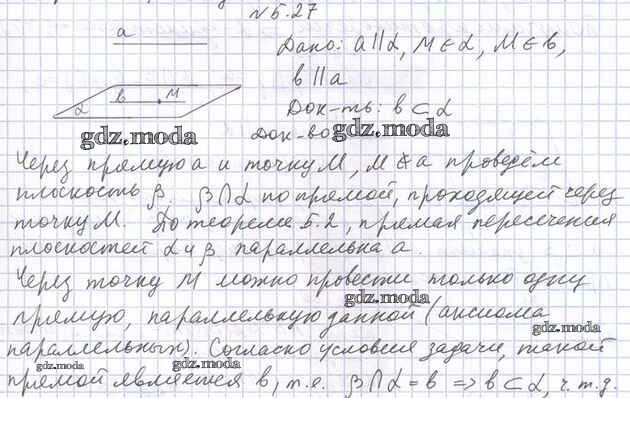 №5.27
a
Дано: a||α, M∈α, M∈b,
b||a
b M
α
Док-ть: b⊂α
gdz.moda
Док-во
gdz.moda
Через прямую a и точку M, M∉a проведём
плоскость β. β∩α по прямой, проходящей через
точку M. По теореме 5.2, прямая пересечения
плоскостей α и β параллельна a.
Через точку M можно провести только одну
gdz.moda
прямую, параллельную данной (аксиома
gdz.moda
параллельных). Согласно условия задачи, такой
gdz.moda
gdz.moda
прямой является b, т.е. β∩α=b => b⊂α, ч.т.д.